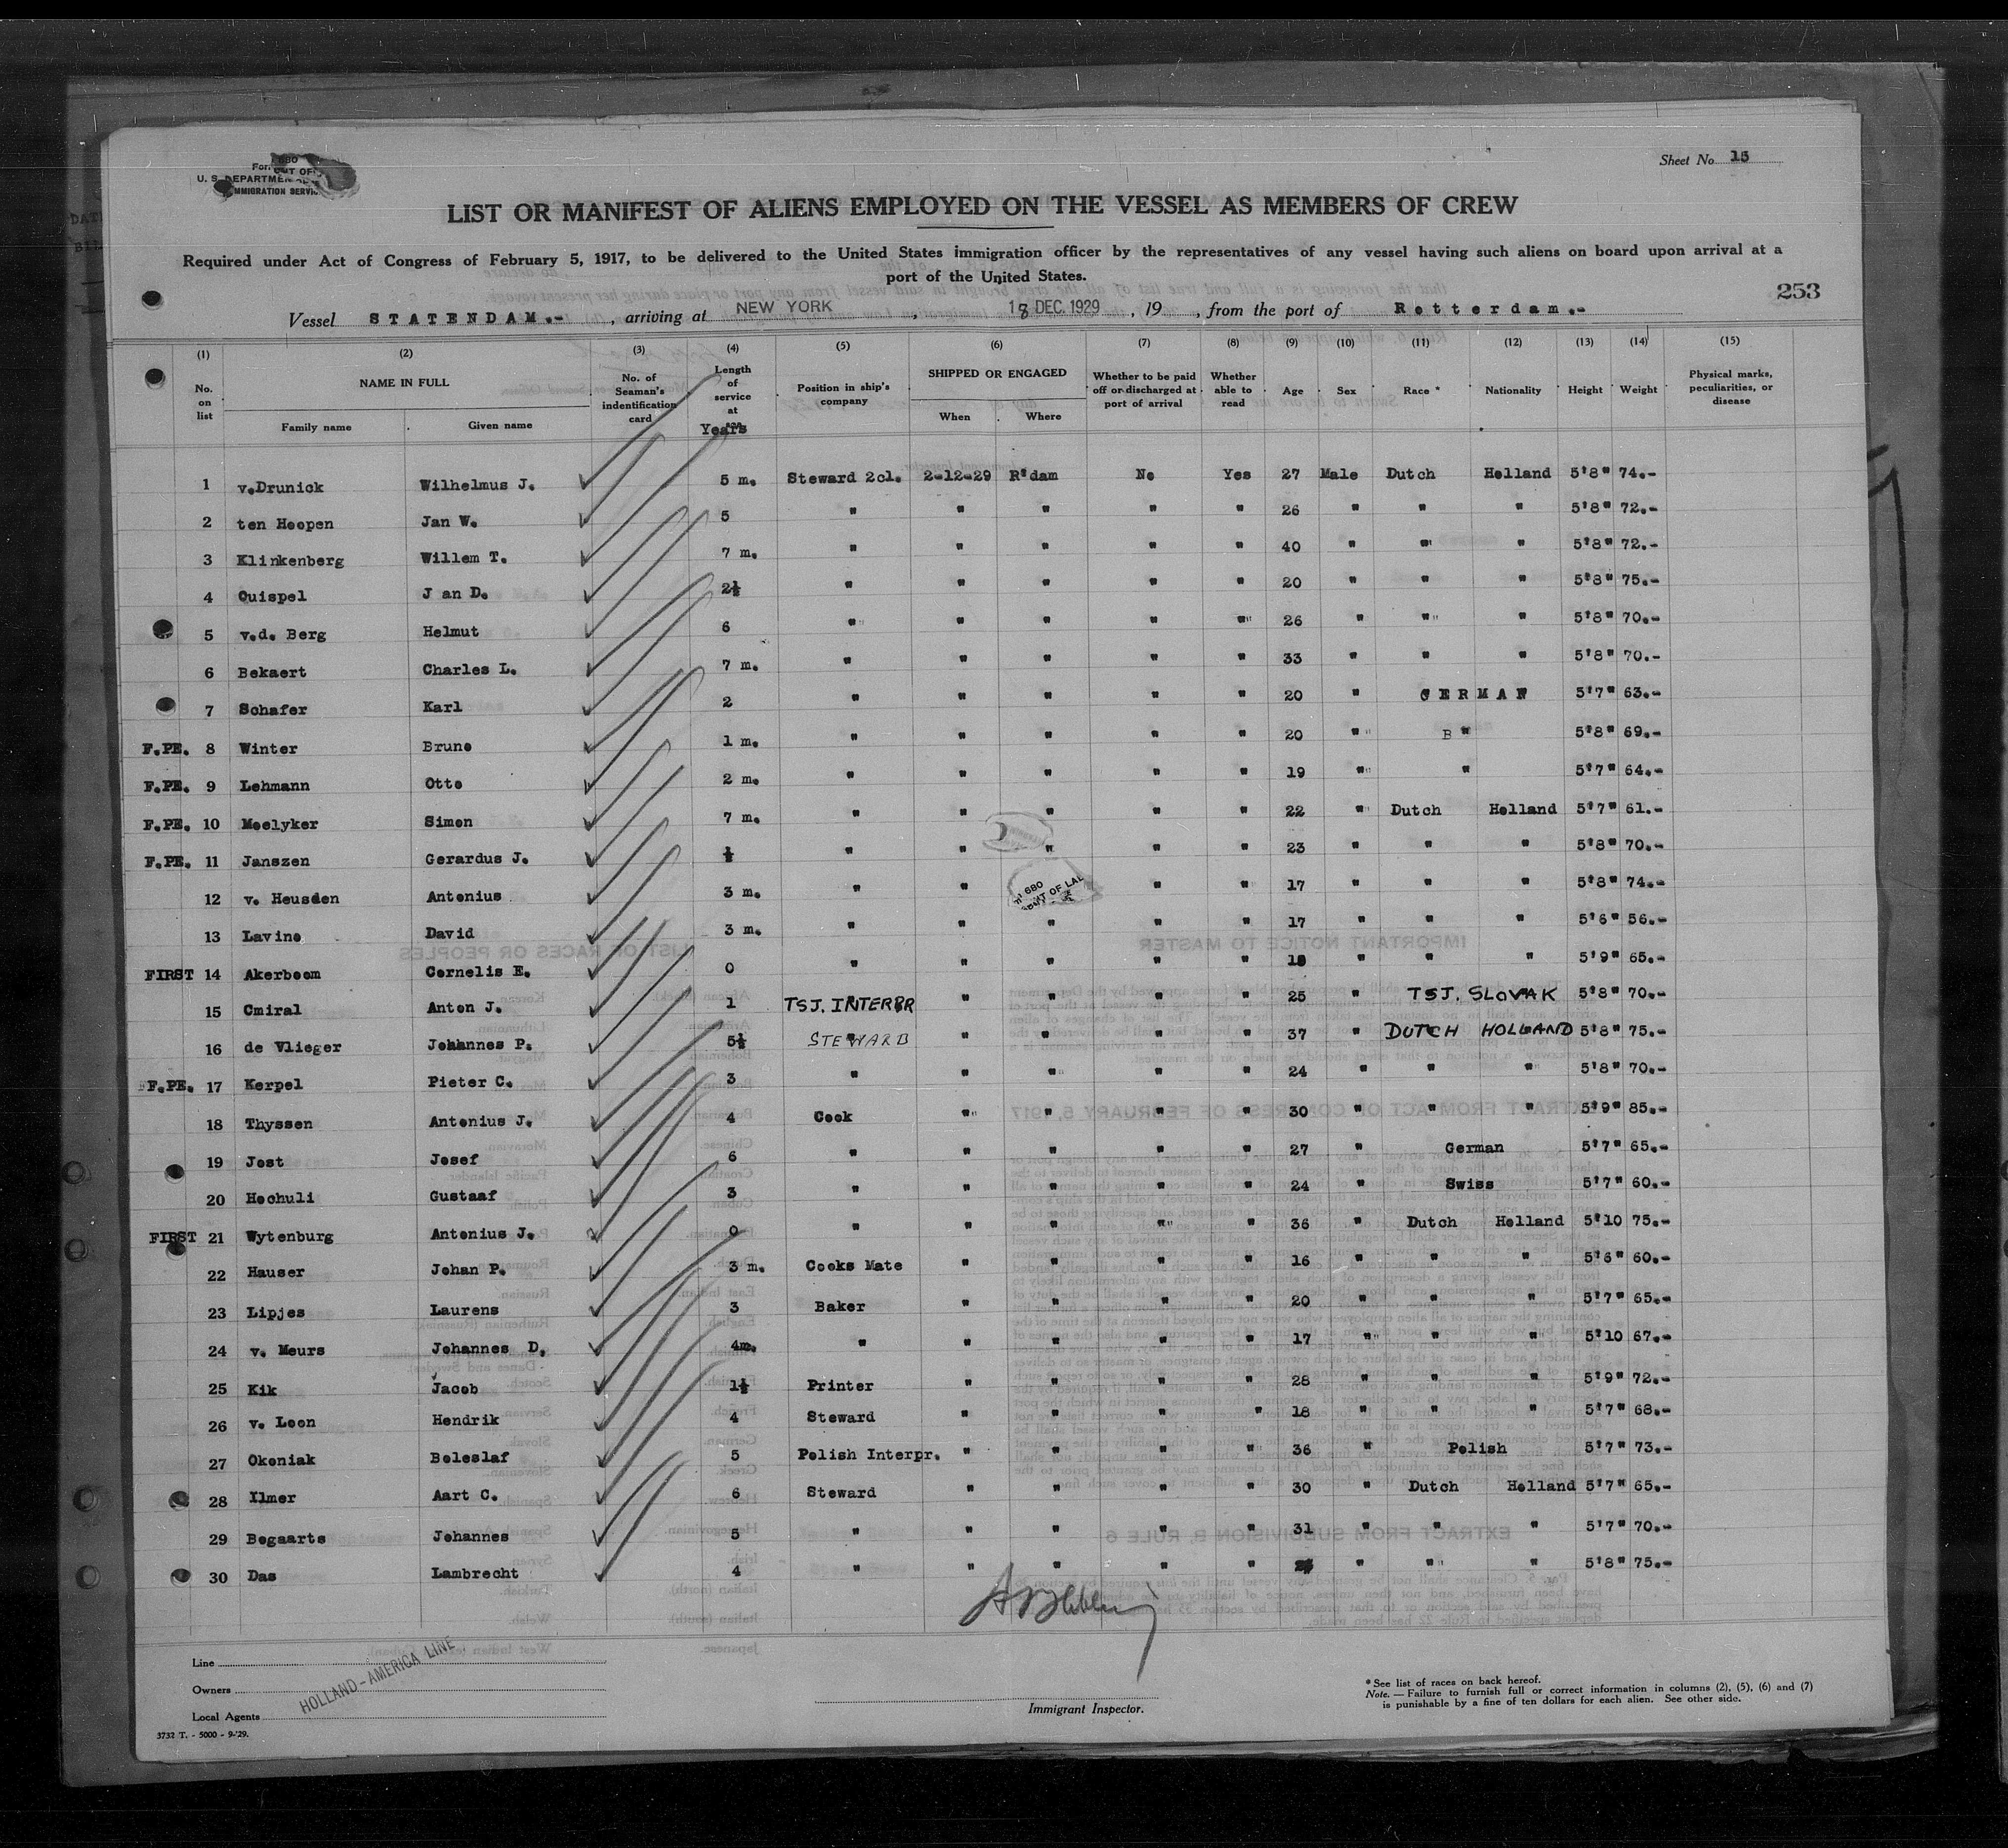 Sheet No 15
U. S. DEPARTMENT
IMMIGRATION SERVICE
LIST OR MANIFEST OF ALIENS EMPLOYED ON THE VESSEL AS MEMBERS OF CREW
Required under Act of Congress of February 5, 1917, to be delivered to the United States immigration officer by the representatives of any vessel having such aliens on board upon arrival at a
port of the United States.
253
Vessel STATENDAM.- , arriving at NEW YORK , 18 DEC. 1929 , 19 , from the port of Rotterdam.-
(1) (2) (3) (4) (5) (6) (7) (8) (9) (10) (11) (12) (13) (14) (15)
No. on list NAME IN FULL Family name Given name No. of Seaman's indentification card Length of service at Years Position in ship's company SHIPPED OR ENGAGED When Where Whether to be paid off or discharged at port of arrival Whether able to read Age Sex Race * Nationality Height Weight Physical marks, peculiarities, or disease
1 v.Drunick Wilhelmus J. 5 m. Steward 2cl. 2-12-29 R'dam No Yes 27 Male Dutch Holland 5'8" 74.-
2 ten Hoopen Jan W. 5 " " " " " 26 " " " 5'8" 72.-
3 Klinkenberg Willem T. 7 m. " " " " " 40 " " " 5'8" 72.-
4 Quispel J an D. 2½ " " " " " 20 " " " 5'8" 75.-
5 v.d. Berg Helmut 6 " " " " " 26 " " " 5'8" 70.-
6 Bekaert Charles L. 7 m. " " " " " 33 " " " 5'8" 70.-
7 Schafer Karl 2 " " " " " 20 " GERMAN 5'7" 63.-
F.PE. 8 Winter Bruno 1 m. " " " " " 20 " " 5'8" 69.-
F.PE. 9 Lehmann Otto 2 m. " " " " " 19 " " 5'7" 64.-
F.PE. 10 Moelyker Simon 7 m. " " " " " 22 " Dutch Holland 5'7" 61.-
F.PE. 11 Janszen Gerardus J. ½ " " " " " 23 " " " 5'8" 70.-
12 v. Heusden Antonius 3 m. " " " " 17 " " " 5'8" 74.-
13 Lavino David 3 m. " " " " " 17 " " " 5'6" 56.-
FIRST 14 Akerboom Cornelis E. 0 " " " " " " " " 5'9" 65.-
15 Cmiral Anton J. 1 TSJ. INTERPR " " " " 25 " TSJ. SLOVAK 5'8" 70.-
16 de Vlieger Johannes P. 5½ STEWARD " " " " 37 " DUTCH HOLLAND 5'8" 75.-
F.PE. 17 Kerpel Pieter C. 3 " " " " " 24 " " " 5'8" 70.-
18 Thyssen Antonius J. 4 Cook " " " " 30 " " " 5'9" 85.-
19 Jost Josef 6 " " " " " 27 " German 5'7" 65.-
20 Hochuli Gustaaf 3 " " " " " 24 " Swiss 5'7" 60.-
FIRST 21 Wytenburg Antonius J. 0 " " " " " 36 " Dutch Holland 5'10 75.-
22 Hauser Johan P. 3 m. Cooks Mate " " " " 16 " " " 5'6" 60.-
23 Lipjes Laurens 3 Baker " " " " 20 " " " 5'7" 65.-
24 v. Meurs Johannes D. 4m. " " " " " 17 " " " 5'10 67.-
25 Kik Jacob 1½ Printer " " " " 28 " " " 5'9" 72.-
26 v. Loon Hendrik 4 Steward " " " " 18 " " " 5'7" 68.-
27 Okoniak Boleslaf 5 Polish Interpr. " " " " 36 " Polish 5'7" 73.-
28 Ilmer Aart C. 6 Steward " " " " 30 " Dutch Holland 5'7" 65.-
29 Bogaarts Johannes 5 " " " " " 31 " " " 5'7" 70.-
30 Das Lambrecht 4 " " " " " " " " 5'8" 75.-
Line
Owners
Local Agents
HOLLAND-AMERICA LINE
Immigrant Inspector.
* See list of races on back hereof.
Note. — Failure to furnish full or correct information in columns (2), (5), (6) and (7)
is punishable by a fine of ten dollars for each alien. See other side.
3732 T. - 5000 - 9-'29.